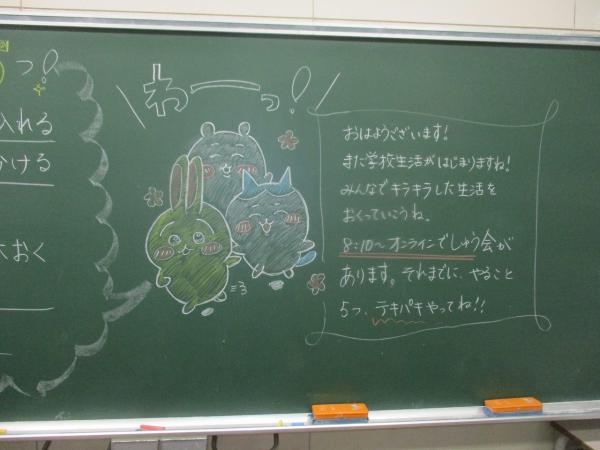 っ!
入れる
かける
おく
わーっ!
おはようございます!
また学校生活がはじまりますね!
みんなでキラキラした生活を
おくっていこうね。
8:10〜オンラインでしゅう会が
あります。それまでに、やること
5つ、テキパキやってね!!